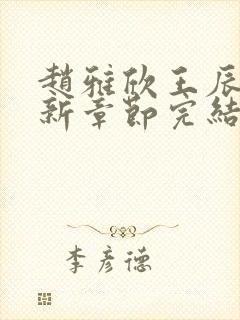 趙雅欣王辰
新章節完結
李彥德